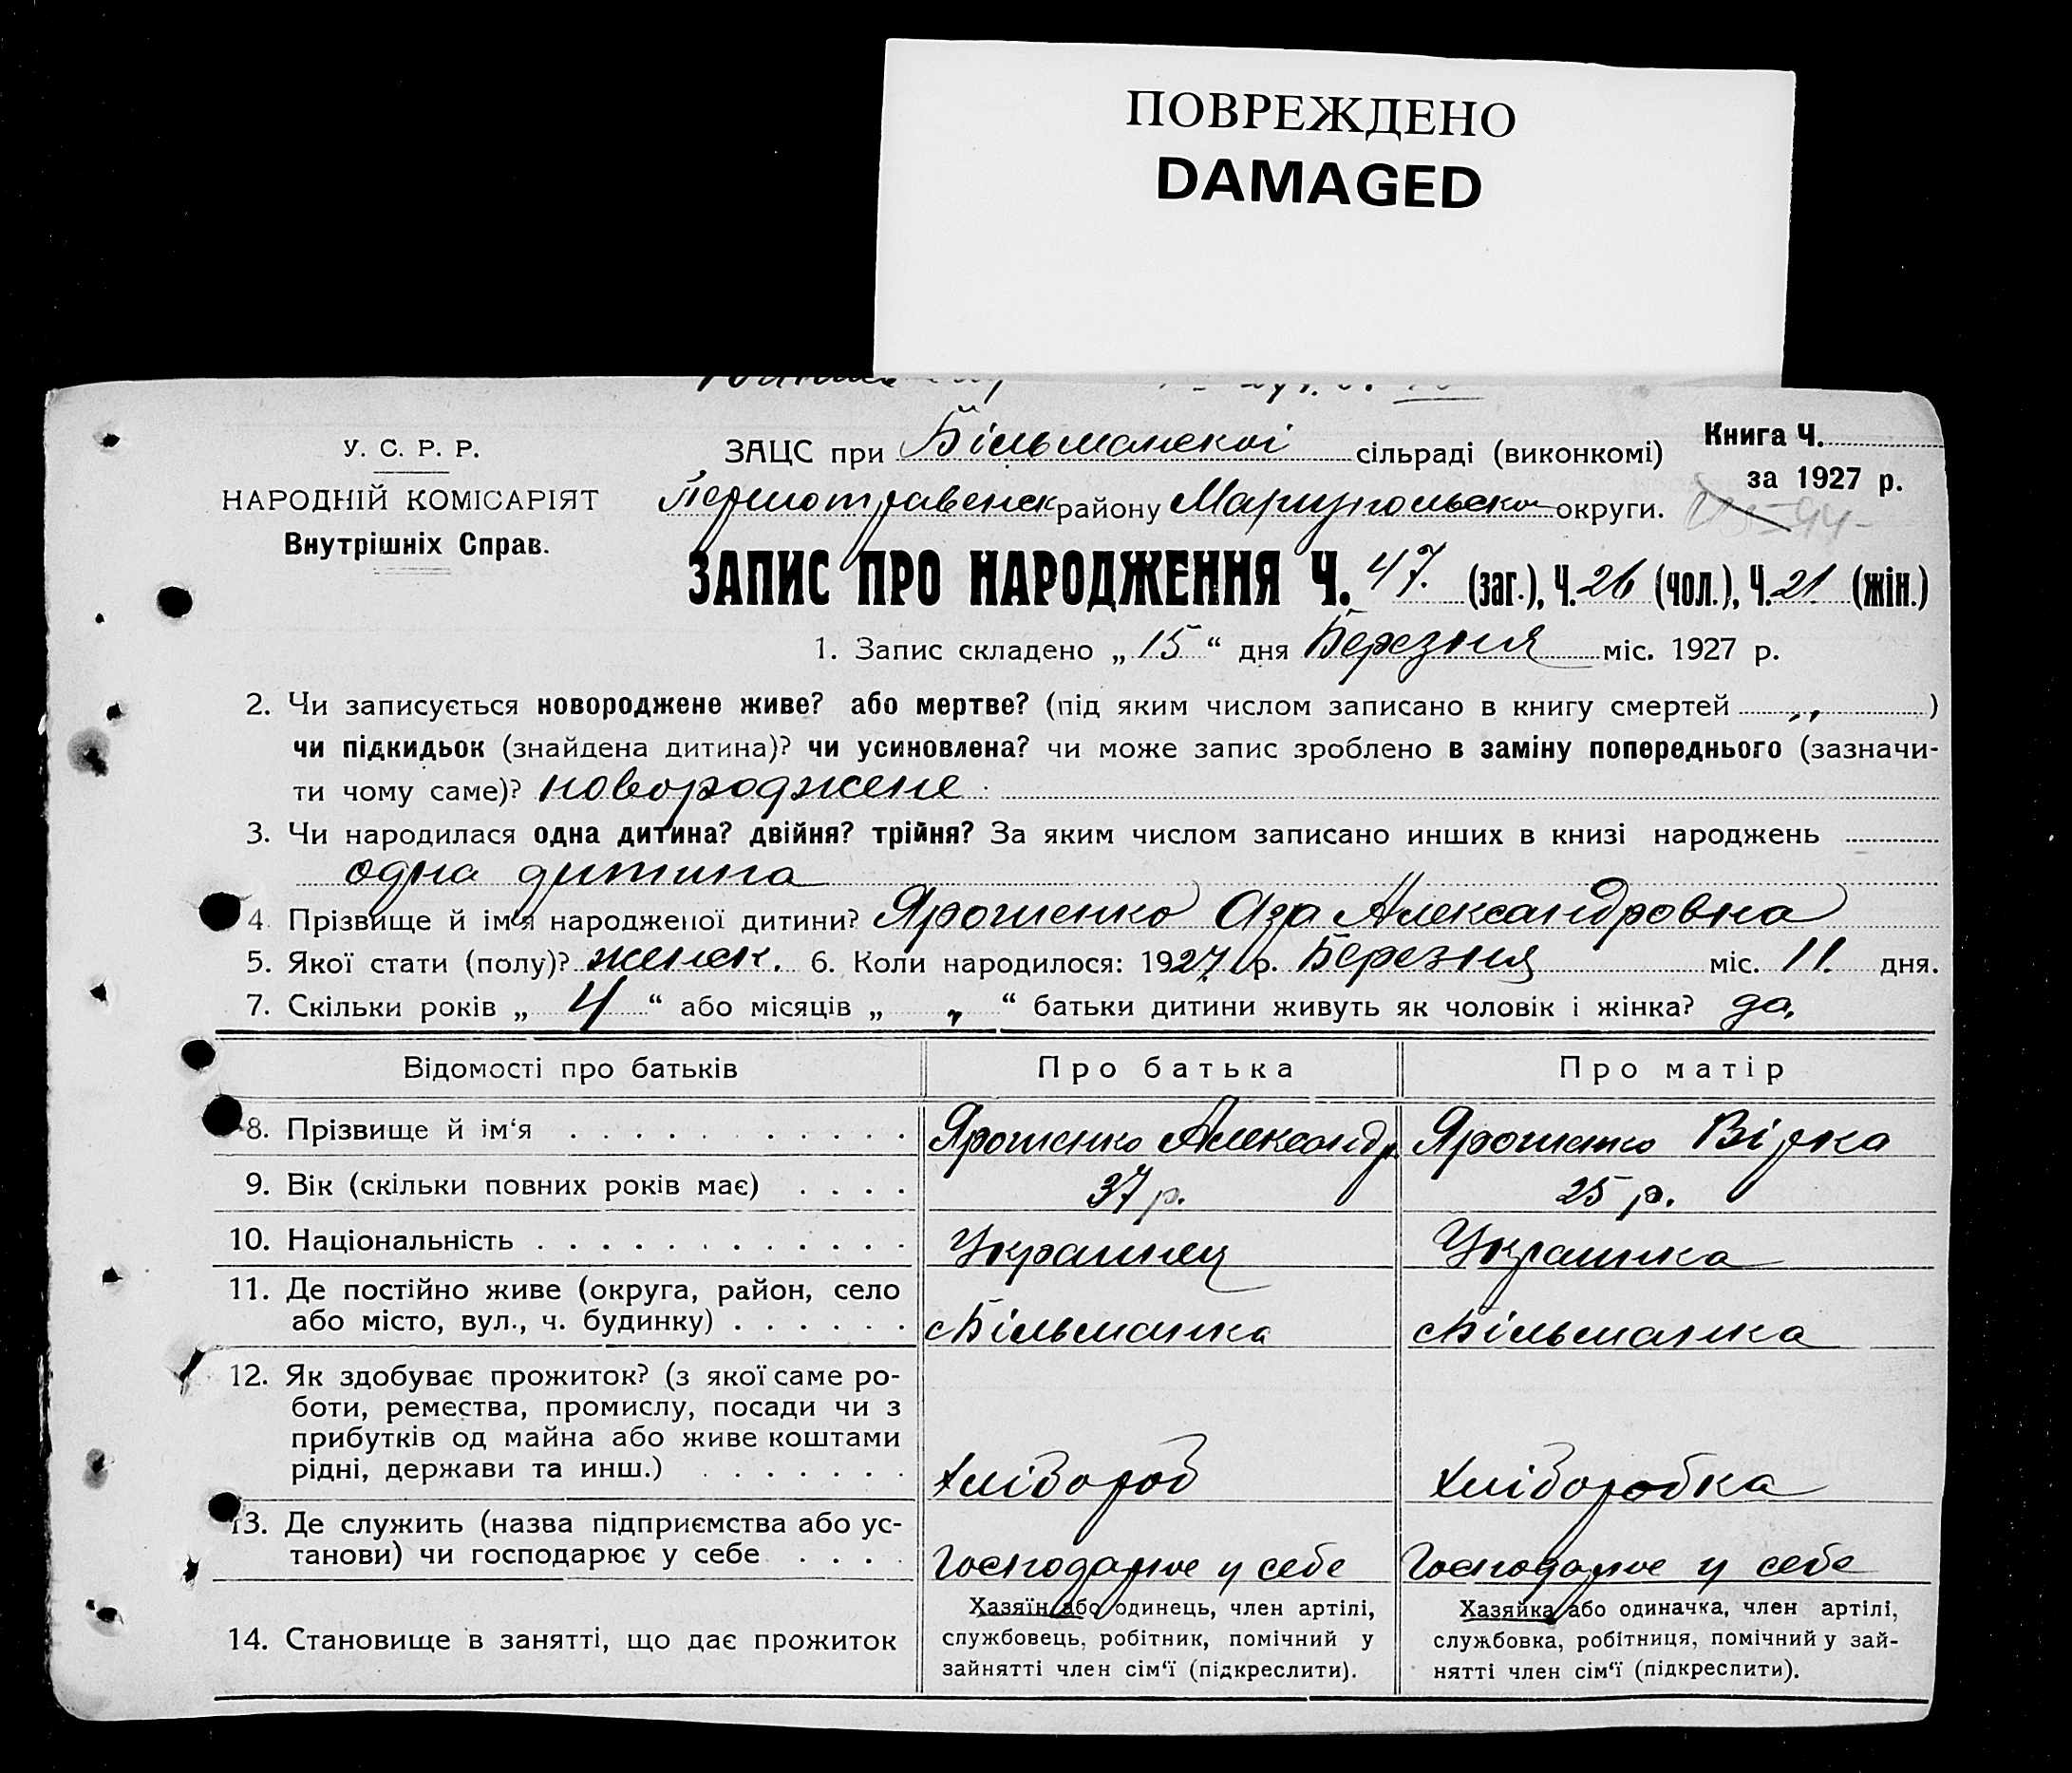 ПОВРЕЖДЕНО
DAMAGED
У. С. Р. Р.
НАРОДНІЙ КОМІСАРІЯТ
Внутрішніх Справ.
ЗАЦС при Більманскоі сільраді (виконкомі)
Книга Ч.
за 1927 р.
Першотравенск району Мариупольскои округи.
ЗАПИС ПРО НАРОДЖЕННЯ Ч. 47. (заг.), Ч. 26 (чол.), Ч. 21 (жін.)
1. Запис складено „ 15 “ дня Березня міс. 1927 р.
2. Чи записується новороджене живе? або мертве? (під яким числом записано в книгу смертей „ )
чи підкидьок (знайдена дитина)? чи усиновлена? чи може запис зроблено в заміну попереднього (зазначи-
ти чому саме)? новороджене
3. Чи народилася одна дитина? двійня? трійня? За яким числом записано инших в книзі народжень
одна дитина
4. Прізвище й ім‘я народженої дитини? Ярошенко Аза Александровна
5. Якої стати (полу)? женск. 6. Коли народилося: 1927 р. Березня міс. 11. дня.
7. Скільки років „ 4 “ або місяців „ „ “ батьки дитини живуть як чоловік і жінка? да.
Відомості про батьків Про батька Про матір
8. Прізвище й ім‘я Ярошенко Александр Ярошенко Вірка
9. Вік (скільки повних років має) 37 р. 25 р.
10. Національність Украинец Украинка
11. Де постійно живе (округа, район, село
або місто, вул., ч. будинку) с Більманка с Більманка
12. Як здобуває прожиток? (з якої саме ро-
боти, ремества, промислу, посади чи з
прибутків од майна або живе коштами
рідні, держави та инш.) Хлібороб Хліборобка
13. Де служить (назва підприємства або ус-
танови) чи господарює у себе Господарює у себе Господарює у себе
14. Становище в занятті, що дає прожиток
Хазяїн або одинець, член артілі,
службовець, робітник, помічний у
зайнятті член сім‘ї (підкреслити).
Хазяйка або одиначка, член артілі,
службовка, робітниця, помічний у зай-
нятті член сім‘ї (підкреслити).